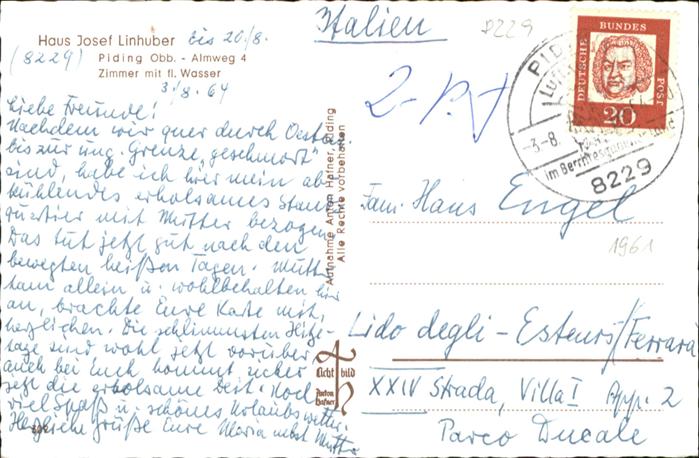 Haus Josef Linhuber bis 20./8.
(8229) Piding Obb. - Almweg 4
Zimmer mit fl. Wasser
3./8. 64
Liebe Freunde!
Nachdem wir quer durch Oesterr.
bis zur ung. Grenze "geschmort"
sind, habe ich hier mein ab-
kühlendes erholsames Stand-
quartier mit Mutter bezogen.
Das tut jetzt gut nach den
bewegten heißen Tagen. Mutti
kam allein u. wohlbehalten hier
an, brachte Eure Karte mit,
herzlichen. Die schlimmsten Hitze-
tage sind wohl jetzt vorüber,
auch bei Euch kommt sicher
jetzt die erholsame Zeit. Noch
viel Spaß u. schönes Urlaubswetter.
Herzliche Grüße Eure Maria nebst Mutter
Aufnahme Anton Hafner, Piding
Alle Rechte vorbehalten
Licht bild
Anton
Hafner
Italien
8229
DEUTSCHE BUNDES POST
20
PID
Luft
-3.-8.
im Berchtesgadener
8229
Fam. Hans Engel
1961
Lido degli - Estensi/Ferrara
XXIV Strada, Villa I App. 2
Parco Ducale